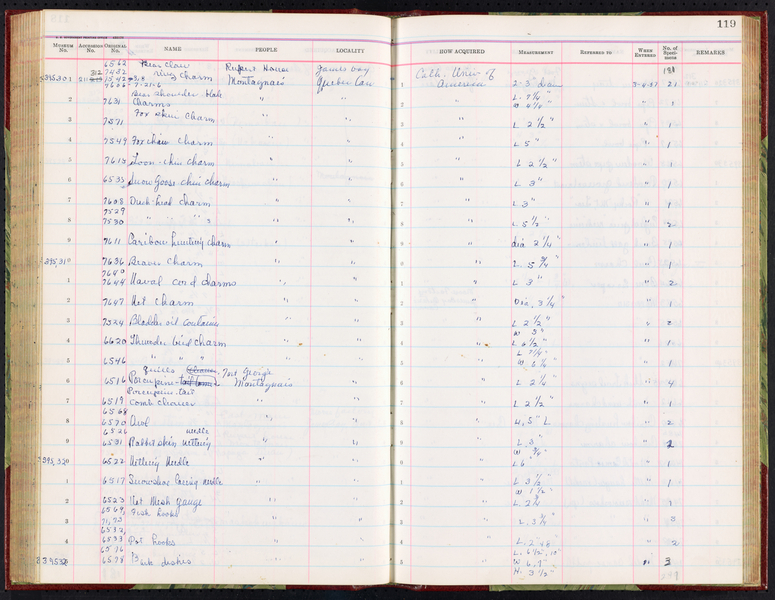 119
MUSEUM No. ACCESSION No. ORIGINAL No. NAME PEOPLE LOCALITY HOW ACQUIRED MEASUREMENT REFERRED TO WHEN ENTERED No. of Specimens REMARKS
6562 Bear claw Rupert House James Bay Cath. Univ of 181
395301 7542 ring charm Montagnais Quebec Can 1 America 2-3" diam 3-4-37 21
7-21-6
Bear shoulder blade L. 7 1/4"
2 7631 Charms " " " W 4 1/4" " 1
3 7571 Fox skin Charm " " " L 2 1/2" " 1
4 7549 Fox chin charm " " " L 5" " 1
5 7615 Loon-chin charm " " " L 2 1/2" " 1
6 6535 Snow Goose chin charm " " " L 3" " 1
7 7608 Duck-head charm " " " L 3" " 1
7529
8 7530 " " " s " " " L 5 1/2" " 2
9 7611 Caribou hunting charm " " " dia 2 1/4" " 1
395,310 7636 Beaver Charm " " " L. 5 3/4" " 1
7640
1 7644 Naval cord charms " " " L 3" " 2
2 7647 Net charm " " " Dia. 3 1/4" " 1
3 7524 Bladder oil container " " " L 2 1/2" " 2
W 5"
4 6620 Thunder bird charm " " " L 6 1/2" " 1
L 7 1/4"
5 6546 " " " " " " W 6 1/4" " 1
quills Fort George
6 6516 Porcupine-tail Montagnais " " L 2 1/4" " 4
Porcupine tail
7 6519 Comb cleaner " " " L 2 1/2" " 1
6568
8 6570 Awl " " " L, 5" L " 2
6526 needle L. 3"
9 6531 Rabbit skin netting " " " W 3/4" " 2
395,320 6522 Netting Needle " " " L 6 " 1
1 6517 Snowshoe Lacing needle " " " L 3 1/2" " 1
W 1 1/2"
2 6523 Net Mesh gauge " " " L. 2 3/4 " 1
6569, Fish hooks
3 71, 73 " " " L. 3 3/4" " 3
6532,
4 6533 Pot hooks " " " L. 2" " 2
6576 L. 6 1/2", 10"
6578 Bark dishes " " 5 " W 6, 7" " 3
H. 3 1/2"